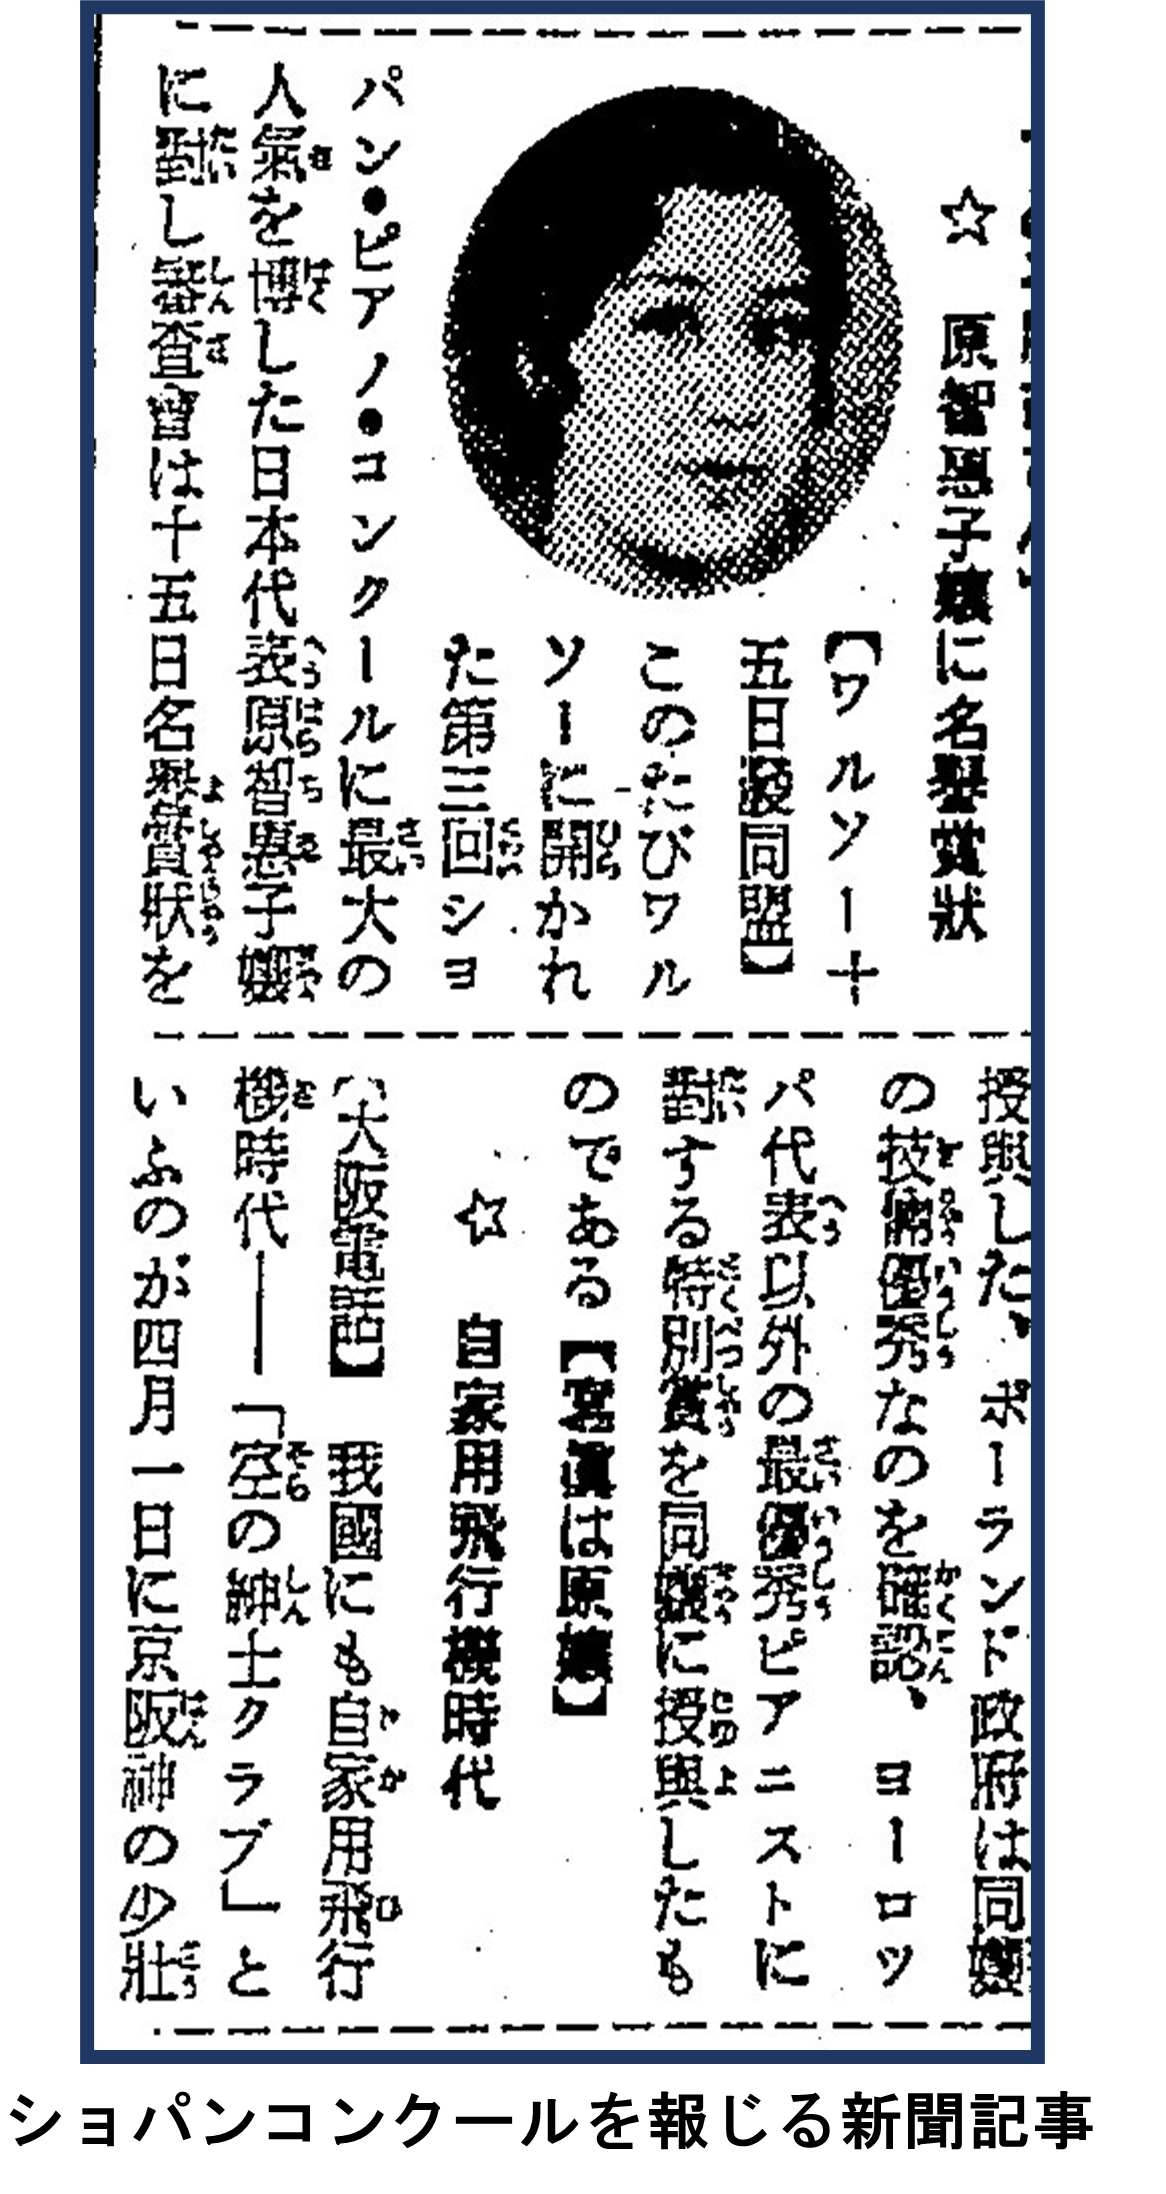 ☆ 原智惠子孃に名譽賞狀
【ワルソー十
五日發同盟】
このたびワル
ソーに開かれ
た第三回ショ
パン・ピアノ・コンクールに最大の
人氣を博した日本代表原智惠子孃
に對し審査會は十五日名譽賞狀を
授與した、ポーランド政府は同孃
の技倆優秀なのを確認、ヨーロッ
パ代表以外の最優秀ピアニストに
對する特別賞を同孃に授與したも
のである【寫眞は原孃】
☆ 自家用飛行機時代
【大阪電話】 我國にも自家用飛行
機時代――「空の紳士クラブ」と
いふのが四月一日に京阪神の少壯
ショパンコンクールを報じる新聞記事